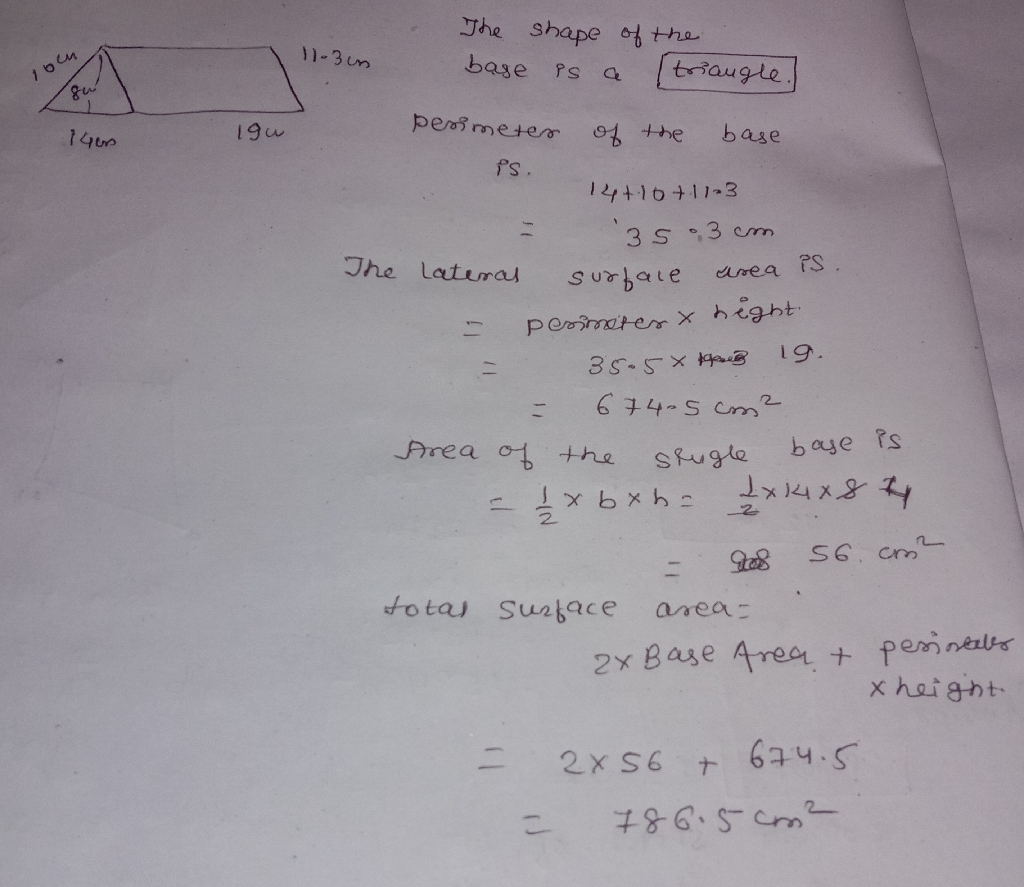 10cm
8cm
14cm
19cm
11.3cm
The shape of the
base is a triangle.
perimeter of the base
is.
14+10+11.3
= 35.3 cm
The lateral surface area is.
= perimeter x hight.
= 35.5 x 19.
= 674.5 cm²
Area of the single base is
= 1/2 x b x h = 1/2 x 14 x 8
= 56. cm²
total surface area =
2x Base Area + perimeter
x height.
= 2x56 + 674.5
= 786.5 cm²